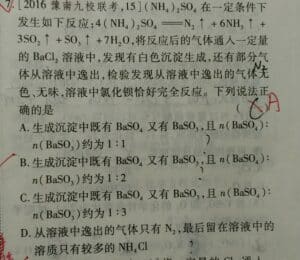 7. [2016 豫南九校联考,15] (NH₄)₂SO₄ 在一定条件下
发生如下反应:4(NH₄)₂SO₄══N₂↑+6NH₃↑+
3SO₂↑+SO₃↑+7H₂O,将反应后的气体通入一定量
的 BaCl₂ 溶液中,发现有白色沉淀生成,还有部分气
体从溶液中逸出,检验发现从溶液中逸出的气体无
N₂
色、无味,溶液中氯化钡恰好完全反应。下列说法正
确的是 (
A
A. 生成沉淀中既有 BaSO₄ 又有 BaSO₃,且 n(BaSO₄):
n(BaSO₃)约为 1:1
B. 生成沉淀中既有 BaSO₄ 又有 BaSO₃,且 n(BaSO₄):
n(BaSO₃)约为 1:2
C. 生成沉淀中既有 BaSO₄ 又有 BaSO₃,且 n(BaSO₄):
n(BaSO₃)约为 1:3
D. 从溶液中逸出的气体只有 N₂,最后留在溶液中的
溶质只有较多的 NH₄Cl